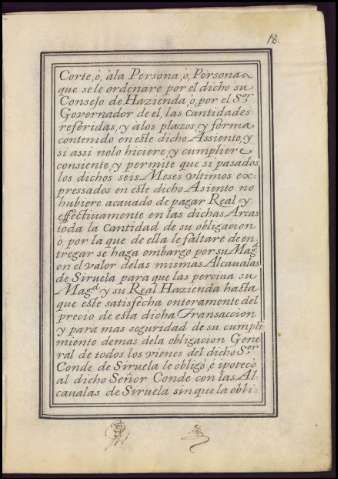 18.
Corte, ò, àla Persona, ò, Personas
que sele ordenare por el dicho su
Consejo de Hazienda o, por el S.or
Governador de el, las cantidades
referidas, y alos plazos, y forma
contenido en este dicho Assiento, y
si assi nolo hiciere, y cumpliere
consiente, y permite que si pasados
los dichos seis Meses vltimos ex-
pressados en este dicho Asiento no
hubiere acauado de pagar Real, y
effectiuamente en las dichas Arcas
toda la Cantidad de su obligacion
o por la que de ella le faltare de en-
tregar se haga embargo por su Mag.d
en el valor delas mismas Alcaualas
de Siruela para que las perciua su
Mag.d y su Real Hazienda hasta
que este satisfecha onteramente del
precio de esta dicha Transaccion
y para mas seguridad de su cumpli
miento demas dela obligacion Gene
ral de todos los vienes del dicho S.or
Conde de Siruela le obligò, è ipotecò
al dicho Señor Conde con las Al-
caualas de Siruela sin que la obli-